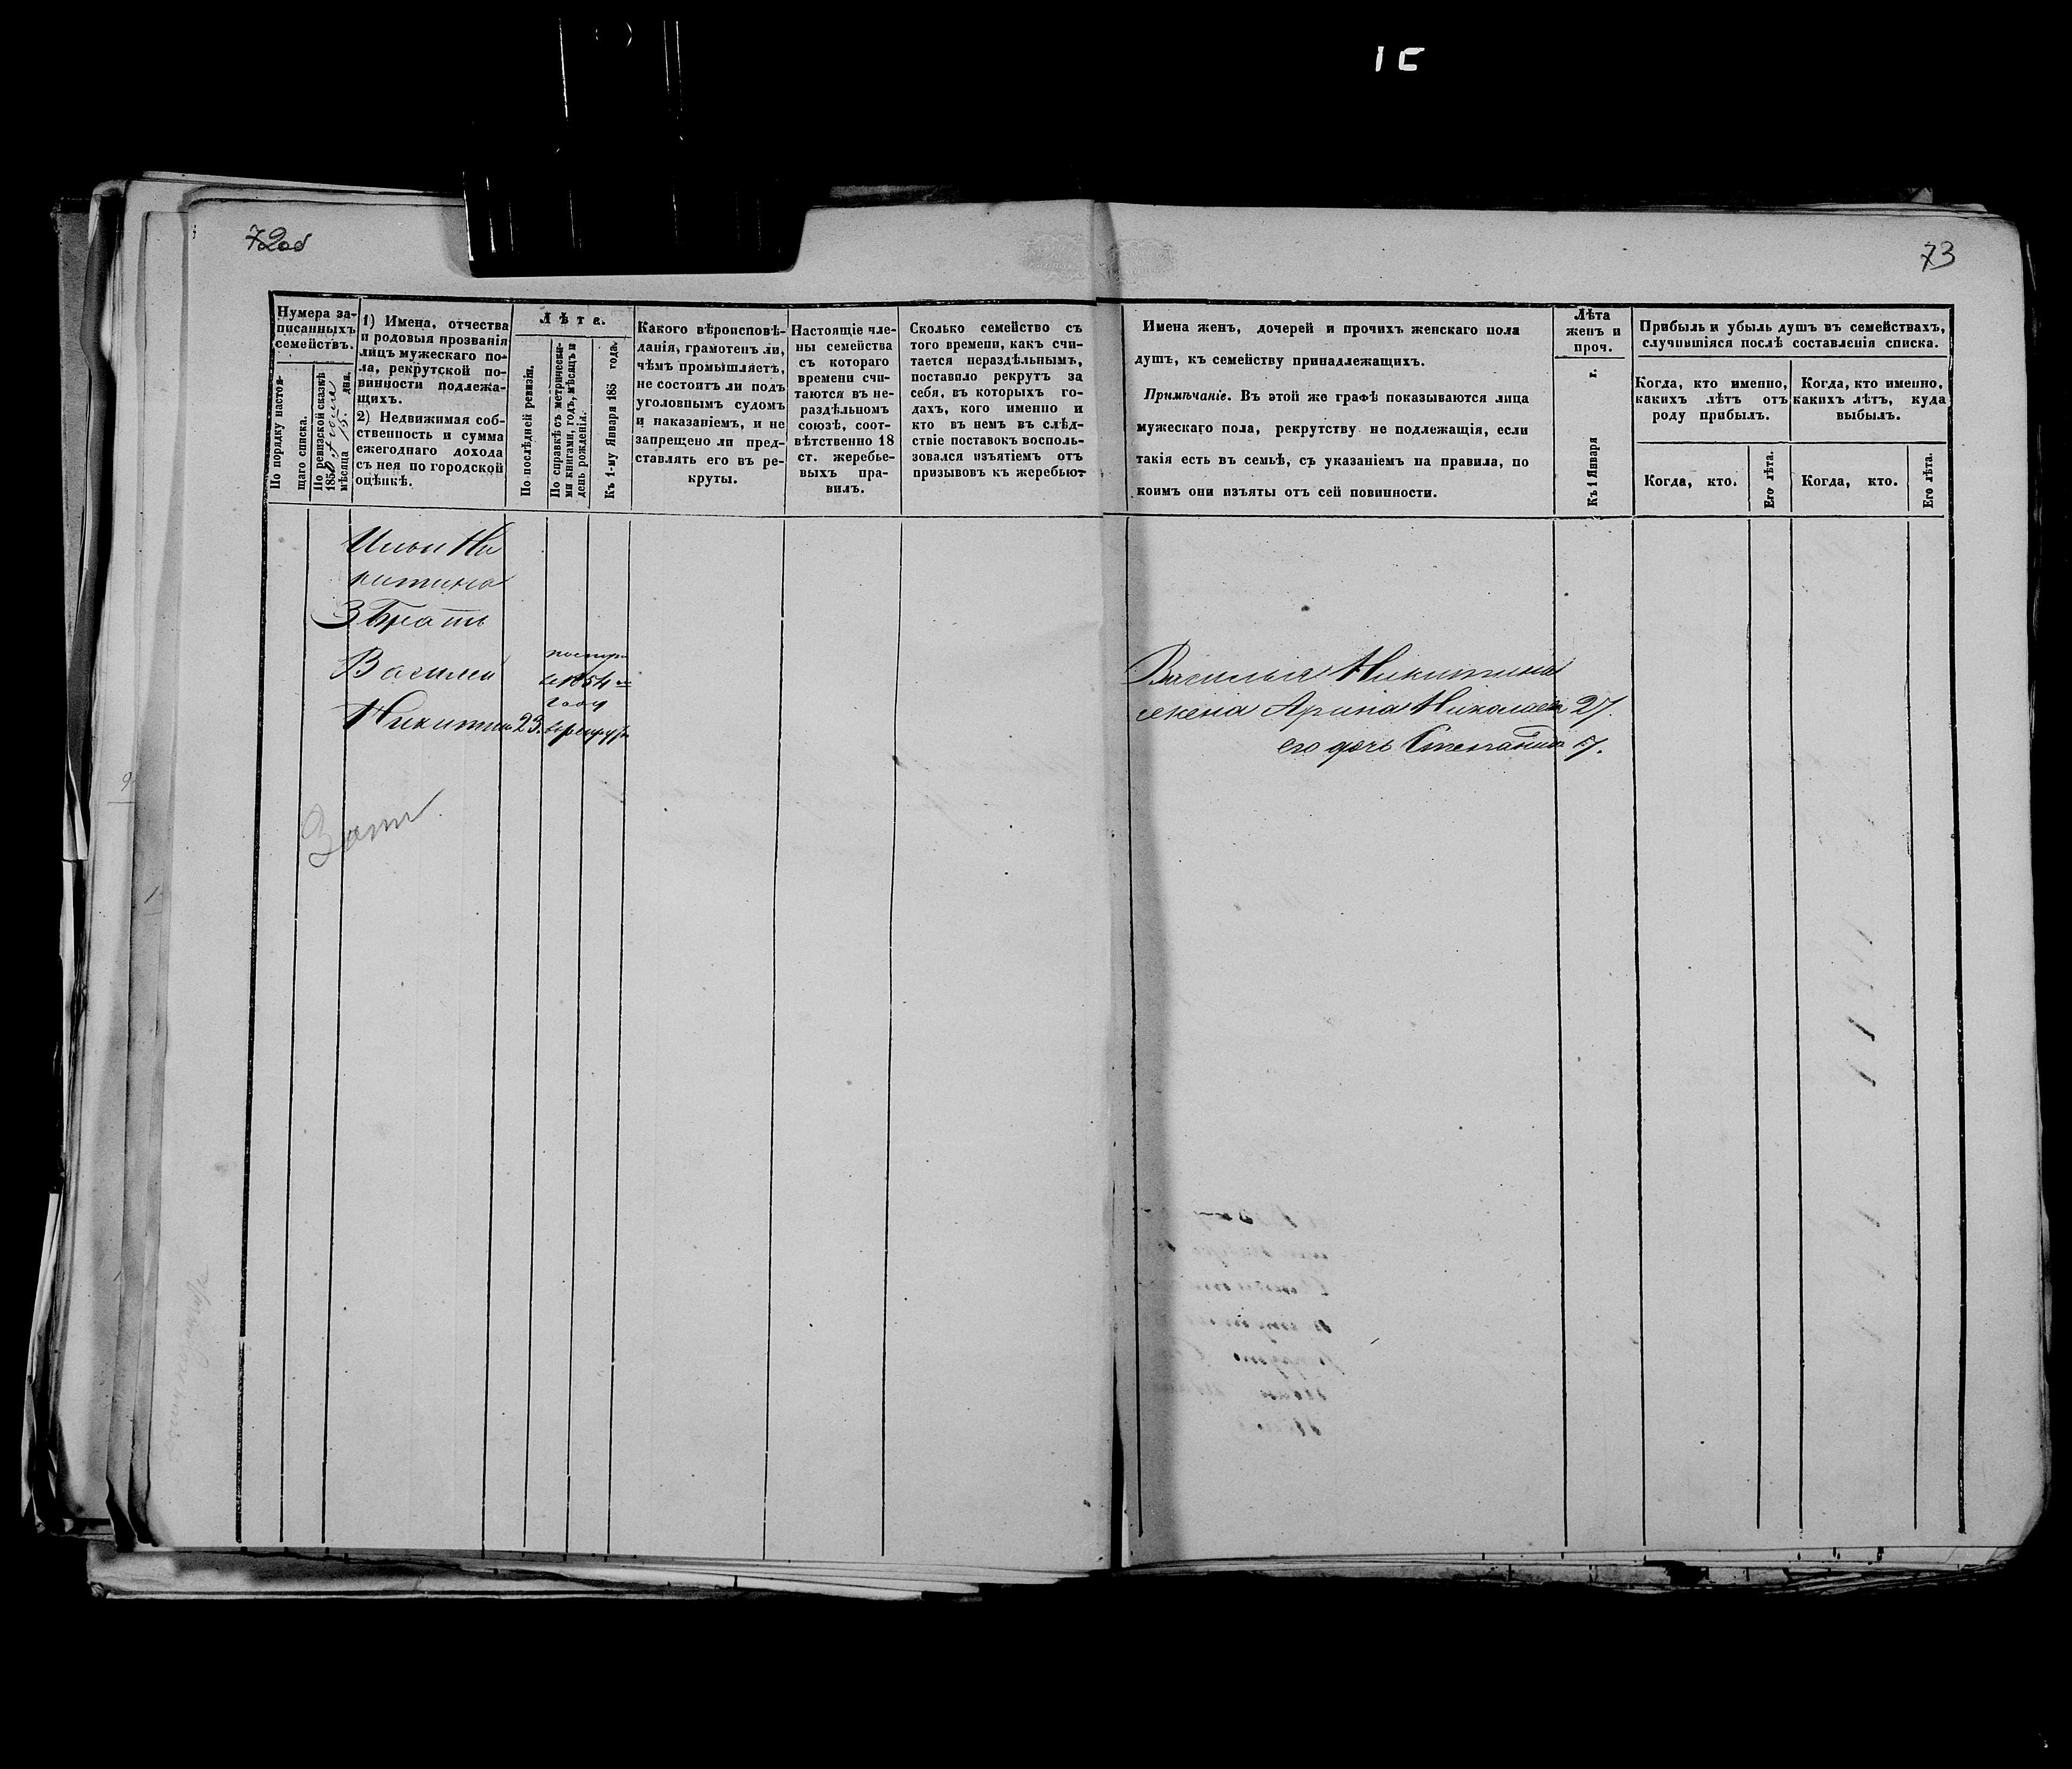 1 С
72об
73
Нумера за-
писанныхъ
семействъ.
По порядку настоя-
щаго списка.
По ревизской сказкѣ
1850
мѣсяца 15. дня.
1) Имена, отчества
и родовыя прозванія
лицъ мужескаго по-
ла, рекрутской по-
винности подлежа-
щихъ.
2) Недвижимая соб-
ственность и сумма
ежегоднаго дохода
съ нея по городской
оцѣнкѣ.
Лѣта.
По послѣдней ревизіи.
По справкѣ съ метрическа-
ми книгами, годъ, мѣсяцъ и
день рожденія.
Къ 1-му Января 185 года.
Какого вѣроисповѣ-
данія, грамотенъ ли,
чѣмъ промышляетъ,
не состоитъ ли подъ
уголовнымъ судомъ
и наказаніемъ, и не
запрещено ли пред-
ставлять его въ ре-
круты.
Настоящіе чле-
ны семейства
съ котораго
времени счи-
таются въ не-
раздѣльномъ
союзѣ, соот-
вѣтственно 18
ст. жеребье-
выхъ пра-
вилъ.
Сколько семейство съ
того времени, какъ счи-
тается нераздѣльнымъ,
поставило рекрутъ за
себя, въ которыхъ го-
дахъ, кого именно и
кто въ немъ въ слѣд-
ствіе поставокъ восполь-
зовался изъятіемъ отъ
призывовъ къ жеребью
Имена женъ, дочерей и прочихъ женскаго пола
душъ, къ семейству принадлежащихъ.
Примѣчаніе. Въ этой же графѣ показываются лица
мужескаго пола, рекрутству не подлежащія, если
такія есть въ семьѣ, съ указаніемъ на правила, по
коимъ они изъяты отъ сей повинности.
Лѣта
женъ и
проч.
Къ 1 Января г.
Прибыль и убыль душъ въ семействахъ,
случившіяся послѣ составленія списка.
Когда, кто именно,
какихъ лѣтъ отъ
роду прибылъ.
Когда, кто именно,
какихъ лѣтъ, куда
выбылъ.
Когда, кто.
Его лѣта.
Когда, кто.
Его лѣта.
Ильи Ни
китина
3 Братъ
Василей
Никитинъ 23.
поступи
в 1854 м
году
в рекруты
Василья Никитина
жена Арина Николаева 27.
его дочь Степанида 7.